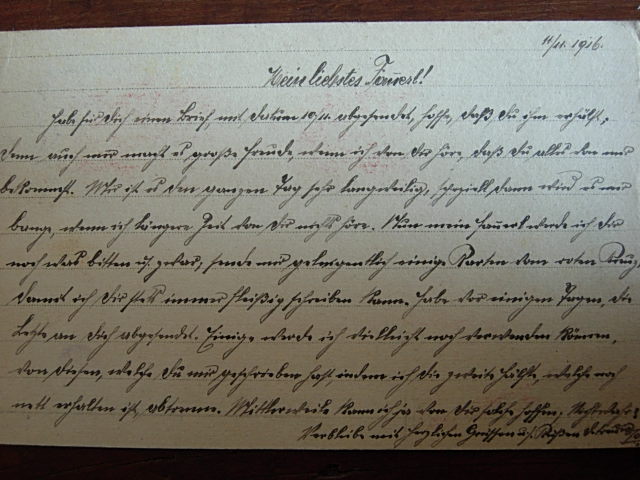 11/11. 1916.
Mein liebstes
Habe für dich einen Brief, mit Datum 10/11. abgesendet, hoffe, daß du ihn erhälst,
denn auch mir macht es große Freude, wenn ich von dir höre, daß du alles von mir
bekommst. Mir ist es den ganzen Tag sehr langweilig, speziell dann wird es mir
bange, wenn ich längere Zeit von dir nichts höre. Nun mein werde ich dir
noch was bitten u. zwar, sende mir gelegentlich einige Karten vom roten Kreuz,
damit ich dir stets immer fleißig schreiben kann. Habe vor einigen Tagen, die
Letzte an dich abgesendet. Einige werde ich vielleicht noch verwenden können,
von diesen, welche du mir geschrieben hast, indem ich die zweite Hälfte, welche noch
nett erhalten ist, abtrenne. Mittlerweile kann ich ja von dir solche hoffen, nicht wahr?
Verbleibe mit herzlichen Grüssen u. Küßen